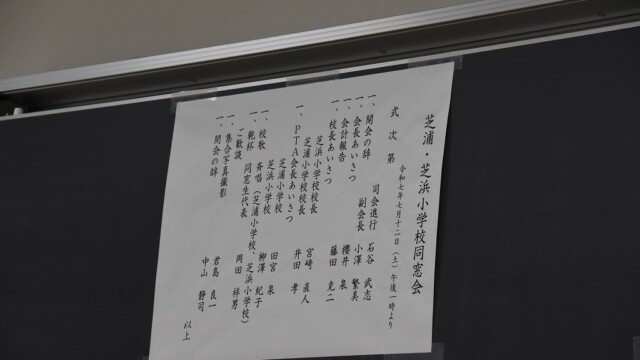 芝浦・芝浜小学校同窓会
式次第
令和七年七月十二日（土）午後一時より
司会進行 石谷 武志
一、開会の辞 副会長 小澤 繁美
一、会長あいさつ 櫻井 泉
一、会計報告 藤田 克二
一、校長あいさつ
芝浜小学校校長 宮崎 直人
芝浦小学校校長 井田 孝
一、PTA会長あいさつ
芝浦小学校 田宮 泉
芝浜小学校 柳澤 紀子
一、校歌 斉唱（芝浦小学校、芝浜小学校）
一、乾杯 同窓生代表 岡田 祥男
ご歓談
一、集合写真撮影 君島 良一
一、閉会の辞 中山 静司
以上